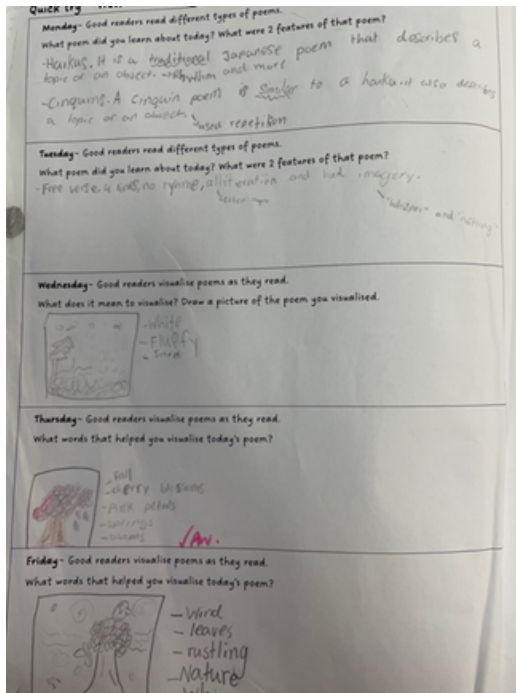 Quick try
Monday- Good readers read different types of poems.
What poem did you learn about today? What were 2 features of that poem?
-Haikus. It is a traditional Japanese poem that describes a
topic or an object. Rhythm and more
-Cinquins. A Cinquin poem is similar to a haiku it also describes
a topic or an object.
used repetition
Tuesday- Good readers read different types of poems.
What poem did you learn about today? What were 2 features of that poem?
-Free verse. 4 lines, no ryhme, alliteration and had imagery.
"whisper" and
Wednesday- Good readers visualise poems as they read.
What does it mean to visualise? Draw a picture of the poem you visualised.
-White
-Fluffy
Thursday- Good readers visualise poems as they read.
What words that helped you visualise today's poem?
-cherry
-Pink petals
-springs
Friday- Good readers visualise poems as they read.
What words that helped you visualise today's poem?
-Wind
-leaves
-rustling
-Nature